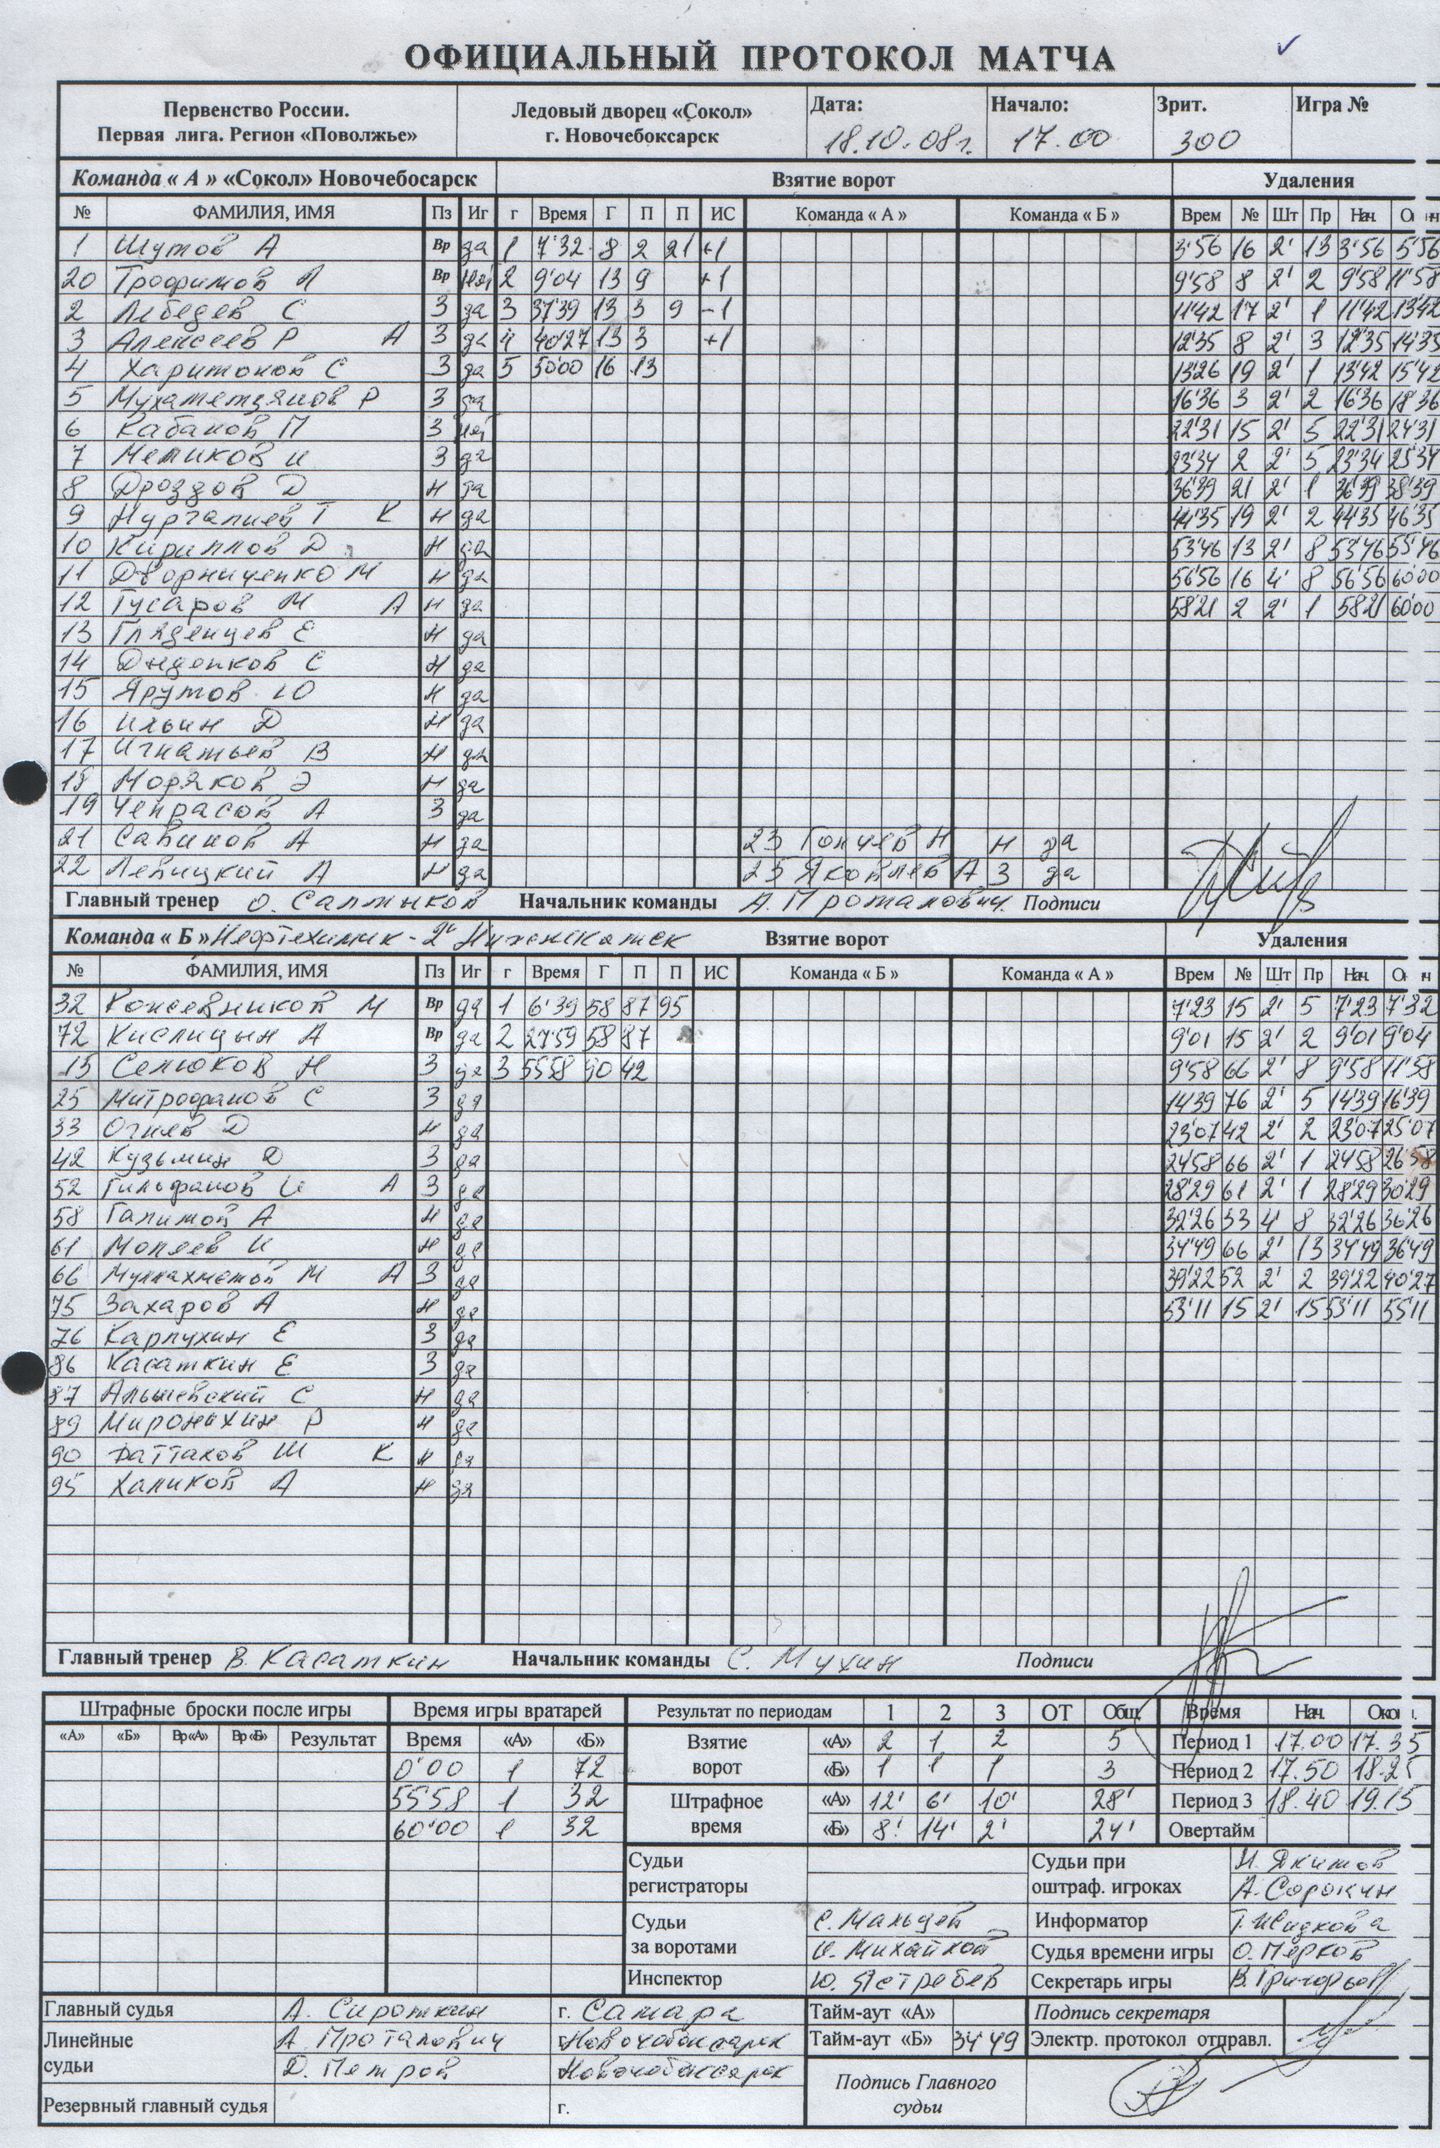 ОФИЦИАЛЬНЫЙ ПРОТОКОЛ МАТЧА
Первенство России. Первая лига. Регион «Поволжье»
Ледовый дворец «Сокол» г. Новочебоксарск
Дата: 18.10.08г.
Начало: 17.00
Зрит. 300
Игра №
Команда « А » «Сокол» Новочебосарск Взятие ворот Удаления
№ ФАМИЛИЯ, ИМЯ Пз Иг г Время Г П П ИС Команда « А » Команда « Б » Врем № Шт Пр Нач. Ок нч
1 Шутов А Вр да 1 7'32 8 2 21 +1 3'56 16 2' 13 3'56 5'56
20 Трофимов А Вр Нет 2 9'04 13 9 +1 9'58 8 2' 2 9'58 11'58
2 Лебедев С З да 3 37'39 13 3 9 -1 11'42 17 2' 1 11'42 13'42
3 Алексеев Р А З да 4 40'27 13 3 +1 12'35 8 2' 3 12'35 14'35
4 Харитонов С З да 5 50'00 16 13 13'26 19 2' 1 13'42 15'42
5 Мухаметзянов Р З да 16'36 3 2' 2 16'36 18'36
6 Кабанов П З Нет 22'31 15 2' 5 22'31 24'31
7 Метиков И З да 23'34 2 2' 5 23'34 25'34
8 Дроздов Д Н да 36'39 21 2' 1 36'39 38'39
9 Нургалиев Т К Н да 44'35 19 2' 2 44'35 46'35
10 Кириллов Д Н да 53'46 13 2' 8 53'46 55'46
11 Дворниченко М Н да 56'56 16 4' 8 56'56 60'00
12 Гусаров М А Н да 58'21 2 2' 1 58'21 60'00
13 Гладенцев Е Н да
14 С Н да
15 Ярутов Ю Н да
16 Ильин Д Н да
17 Игнатьев В Н да
18 Моряков Э Н да
19 Чепрасов А З да
21 Савинов А Н да 23 Н Н да
22 Левицкий А Н да 25 Яковлев А З да
Главный тренер О. Салтыков Начальник команды А. Протапович. Подписи
Команда « Б » Нефтехимик-2" Нижнекамск Взятие ворот Удаления
№ ФАМИЛИЯ, ИМЯ Пз Иг г Время Г П П ИС Команда « Б » Команда « А » Врем № Шт Пр Нач. Ок нч
32 Кожевников М Вр да 1 6'39 58 87 95 7'23 15 2' 5 7'23 7'32
72 Кислицын А Вр да 2 27'59 58 87 9'01 15 2' 2 9'01 9'04
15 Селюков Н З да 3 55'58 90 42 9'58 66 2' 8 9'58 11'58
25 Митрофанов С З да 14'39 76 2' 5 14'39 16'39
33 Огнев Д Н да 23'07 42 2' 2 23'07 25'07
42 Кузьмин Д З да 24'58 66 2' 1 24'58 26'58
52 Гильфанов И А З да 28'29 61 2' 1 28'29 30'29
58 Галимов А Н да 32'26 33 4' 8 32'26 36'26
61 Моляев И Н да 34'49 66 2' 13 34'49 36'49
66 Муллахметов М А З да 39'22 52 2' 2 39'22 40'27
75 Захаров А Н да 53'11 15 2' 15 53'11 55'11
76 Карпухин Е З да
86 Касаткин Е З да
87 Альшевский С Н да
89 Миронихин Р Н да
90 Фаттахов Ш К Н да
95 Халиков А Н да
Главный тренер В. Касаткин Начальник команды С. Мухин Подписи
Штрафные броски после игры Время игры вратарей Результат по периодам 1 2 3 ОТ Общ. Время Нач. Окон.
«А» «Б» Вр«А» Вр«Б» Результат Время «А» «Б»
Взятие ворот «А» 2 1 2 5 Период 1 17.00 17.35
0'00 1 72 «Б» 1 1 1 3 Период 2 17.50 18.25
55'58 1 32 Штрафное время «А» 12' 6' 10' 28' Период 3 18.40 19.15
60'00 1 32 «Б» 8' 14' 2' 24' Овертайм
Судьи регистраторы Судьи при оштраф. игроках Н. Якимов
А. Сорокин
Судьи за воротами С. Мальцев Информатор Т. Жидкова
О. Михайлов Судья времени игры О. Перков
Инспектор Ю. Ястребов Секретарь игры В. Григорьев
Главный судья А. Сироткин г. Самара Тайм-аут «А» Подпись секретаря
Линейные судьи А. Протапович г. Новочебоксарск Тайм-аут «Б» 34'49 Электр. протокол отправл.
Д. Петров Новочебоксарск Подпись Главного судьи
Резервный главный судья г.